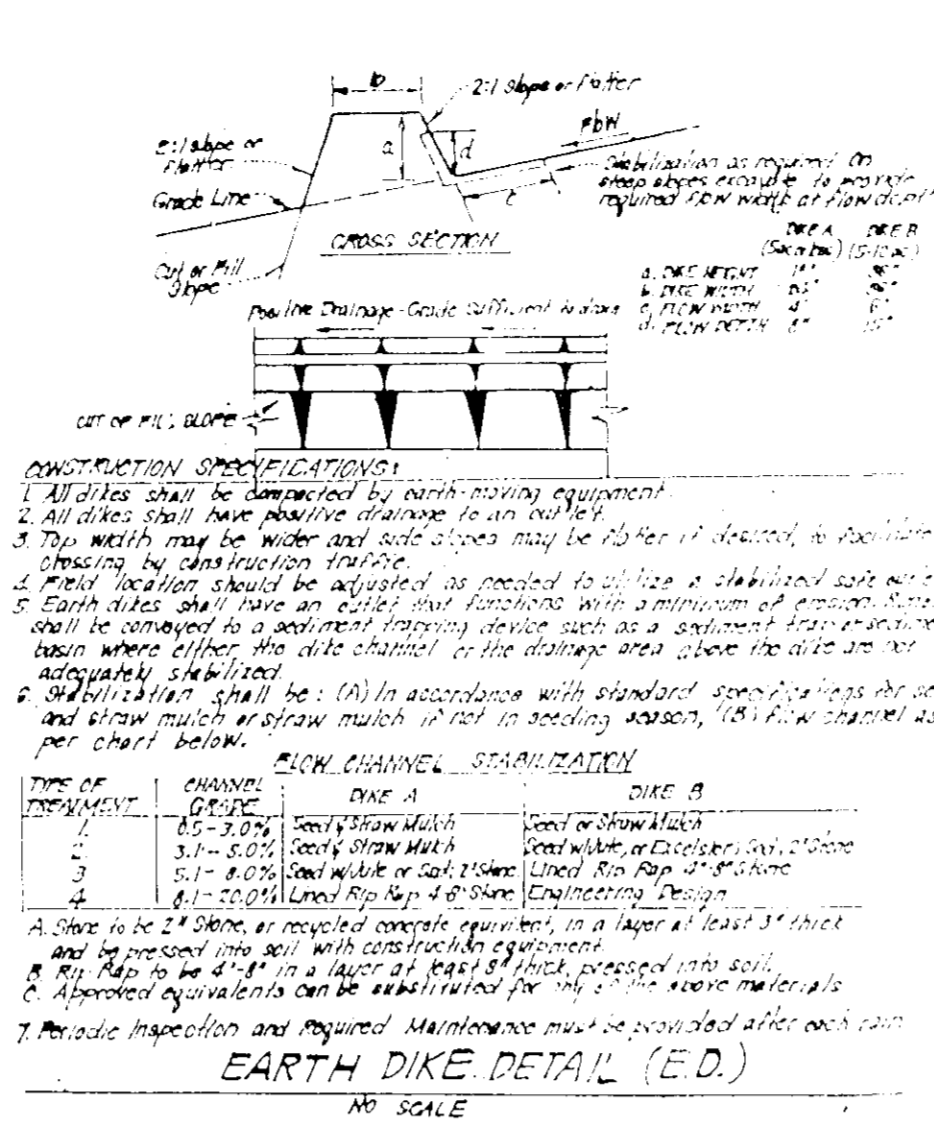 b
2:1 Slope or Flatter
Flow
2:1 slope or
Flatter
a
d
Stabilization as required. On
steep slopes excavate to provide
required flow width at flow depth
Grade Line
c
CROSS SECTION
Cut or Fill
Slope
DIKE A DIKE B
(5-10 ac)
a. DIKE HEIGHT 36"
b. DIKE WIDTH 36"
c. FLOW WIDTH 4' 6'
d. FLOW DEPTH 8" 15"
Positive Drainage-Grade Sufficient to drain
CUT OR FILL SLOPE
CONSTRUCTION SPECIFICATIONS:
1. All dikes shall be compacted by earth-moving equipment.
2. All dikes shall have positive drainage to an outlet.
3. Top width may be wider and side slopes may be flatter if desired, to facilitate
crossing by construction traffic.
4. Field location should be adjusted as needed to utilize a stabilized safe
5. Earth dikes shall have an outlet that functions with a minimum of erosion.
shall be conveyed to a sediment trapping device such as a sediment trap or
basin where either the dike channel or the drainage area above the dike are not
adequately stabilized.
6. Stabilization shall be: (A) In accordance with standard specifications for
and straw mulch or straw mulch if not in seeding season, (B) flow channel as
per chart below.
FLOW CHANNEL STABILIZATION
TYPE OF CHANNEL DIKE A DIKE B
TREATMENT GRADE
1. 0.5-3.0% Seed & Straw Mulch Seed or Straw Mulch
2. 3.1-5.0% Seed & Straw Mulch Seed w/Jute, or Excelsior; Sod; 2" Stone
3 5.1-8.0% Seed w/Jute or Sod; 2" Stone Lined Rip Rap 4"-8" Stone
4 8.1-20.0% Lined Rip Rap 4"-8" Stone Engineering Design
A. Stone to be 2" Stone, or recycled concrete equivilent, in a layer at least 3" thick
and be pressed into soil with construction equipment.
B. Rip Rap to be 4"-8" in a layer at least 8" thick, pressed into soil.
C. Approved equivalents can be substituted for any of the above materials
7. Periodic Inspection and Required Maintenance must be provided after each rain
EARTH DIKE DETAIL (E.D.)
NO SCALE